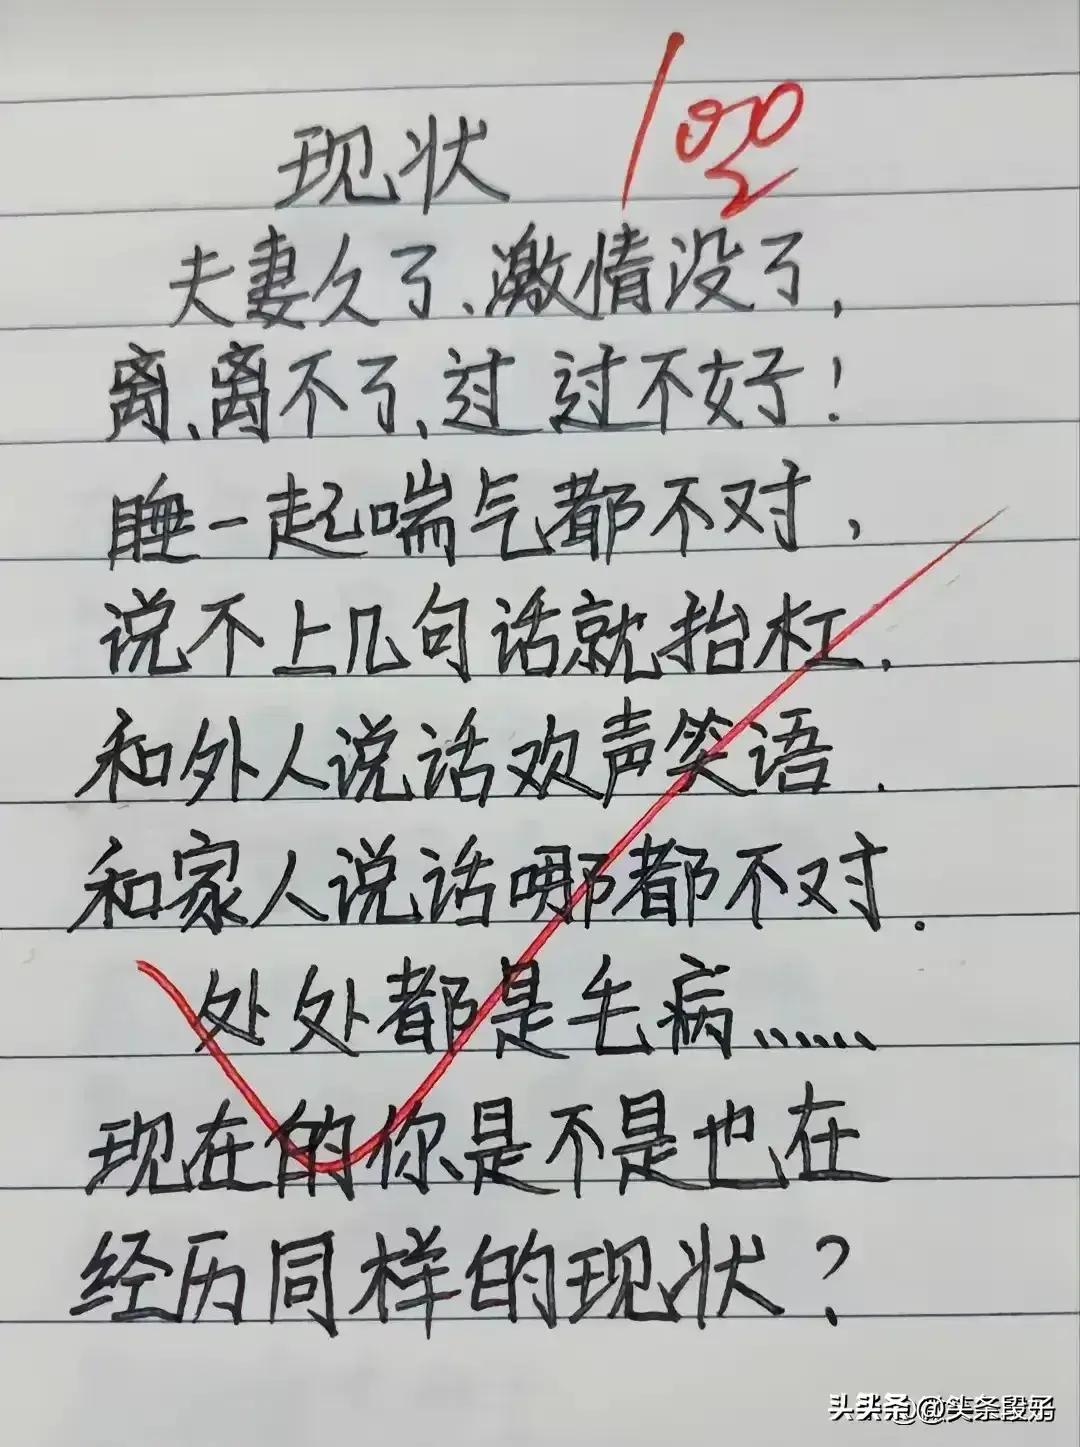 现状
100
夫妻久了、激情没了,
离、离不了,过 过不好!
睡一起喘气都不对,
说不上几句话就抬杠.
和外人说话欢声笑语.
和家人说话哪都不对.
处处都是毛病……
现在的你是不是也在
经历同样的现状?
头条